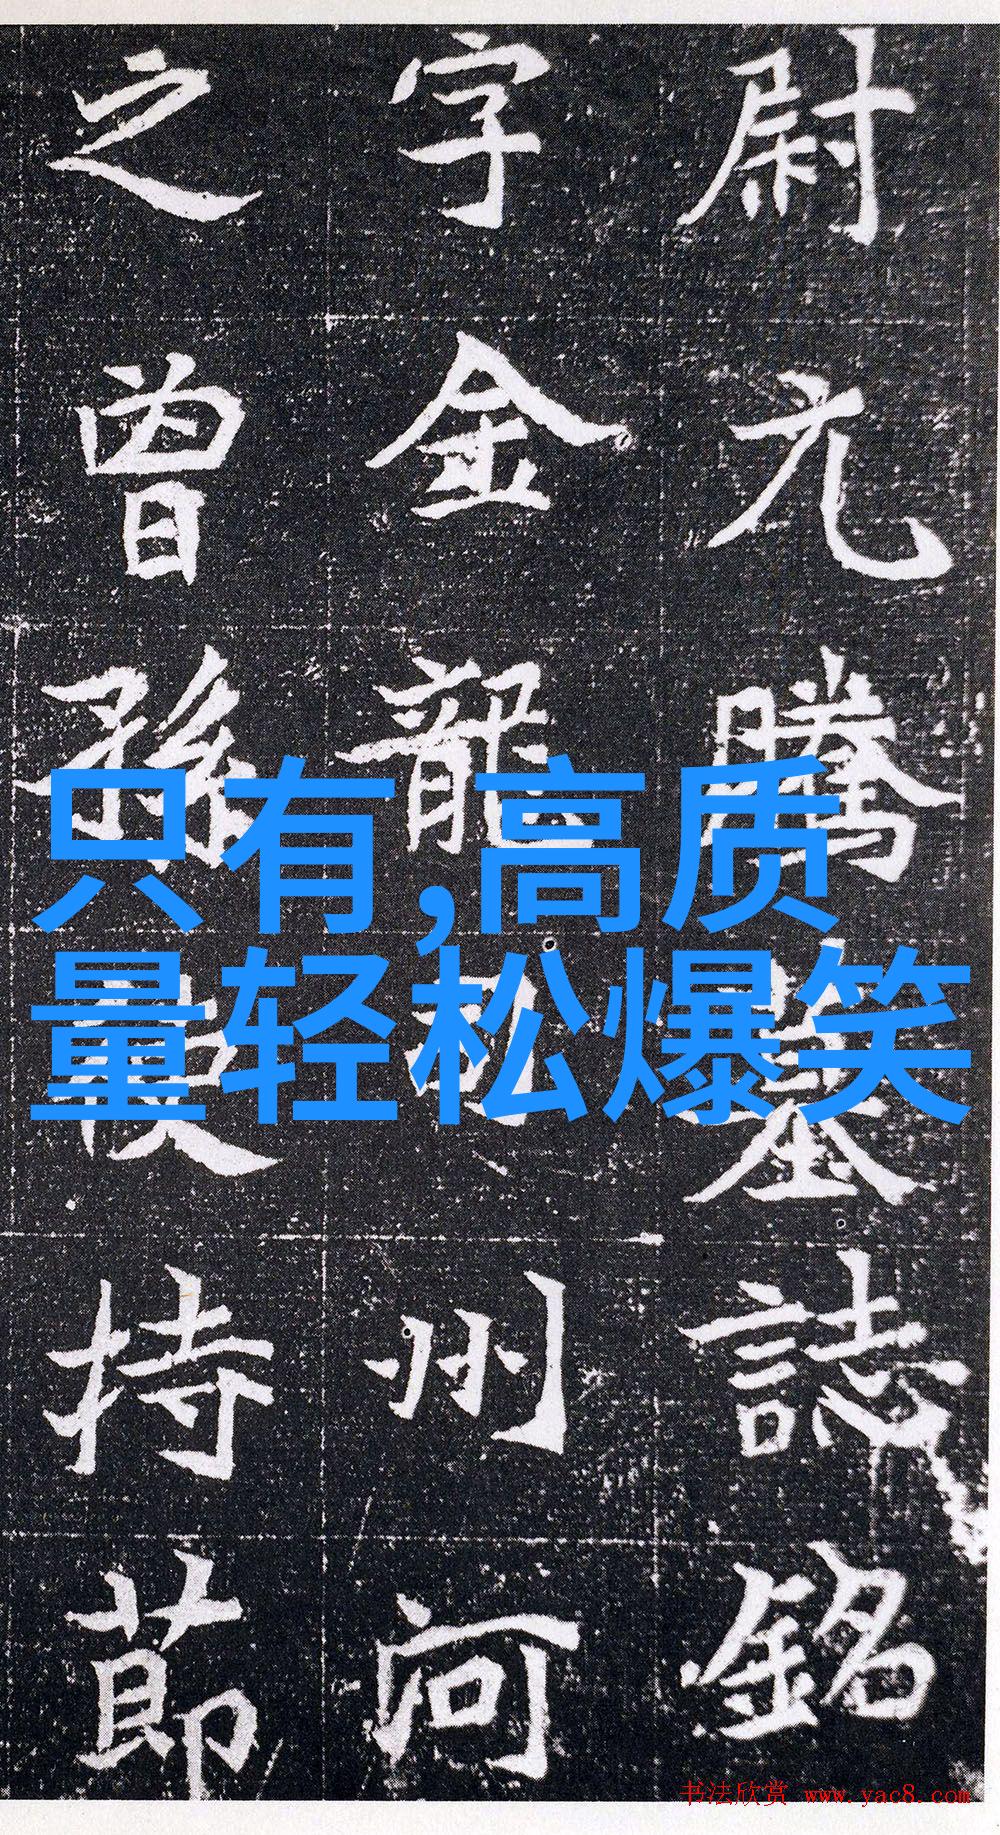 尉元騰墓誌銘
字金龍司州河
之曾孫使持節
只有,高质
量轻松爆笑
书法欣赏 www.yac8.com